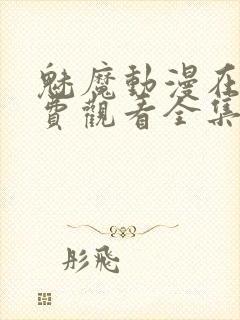 魅魔動漫在
費觀看全集
彤飛